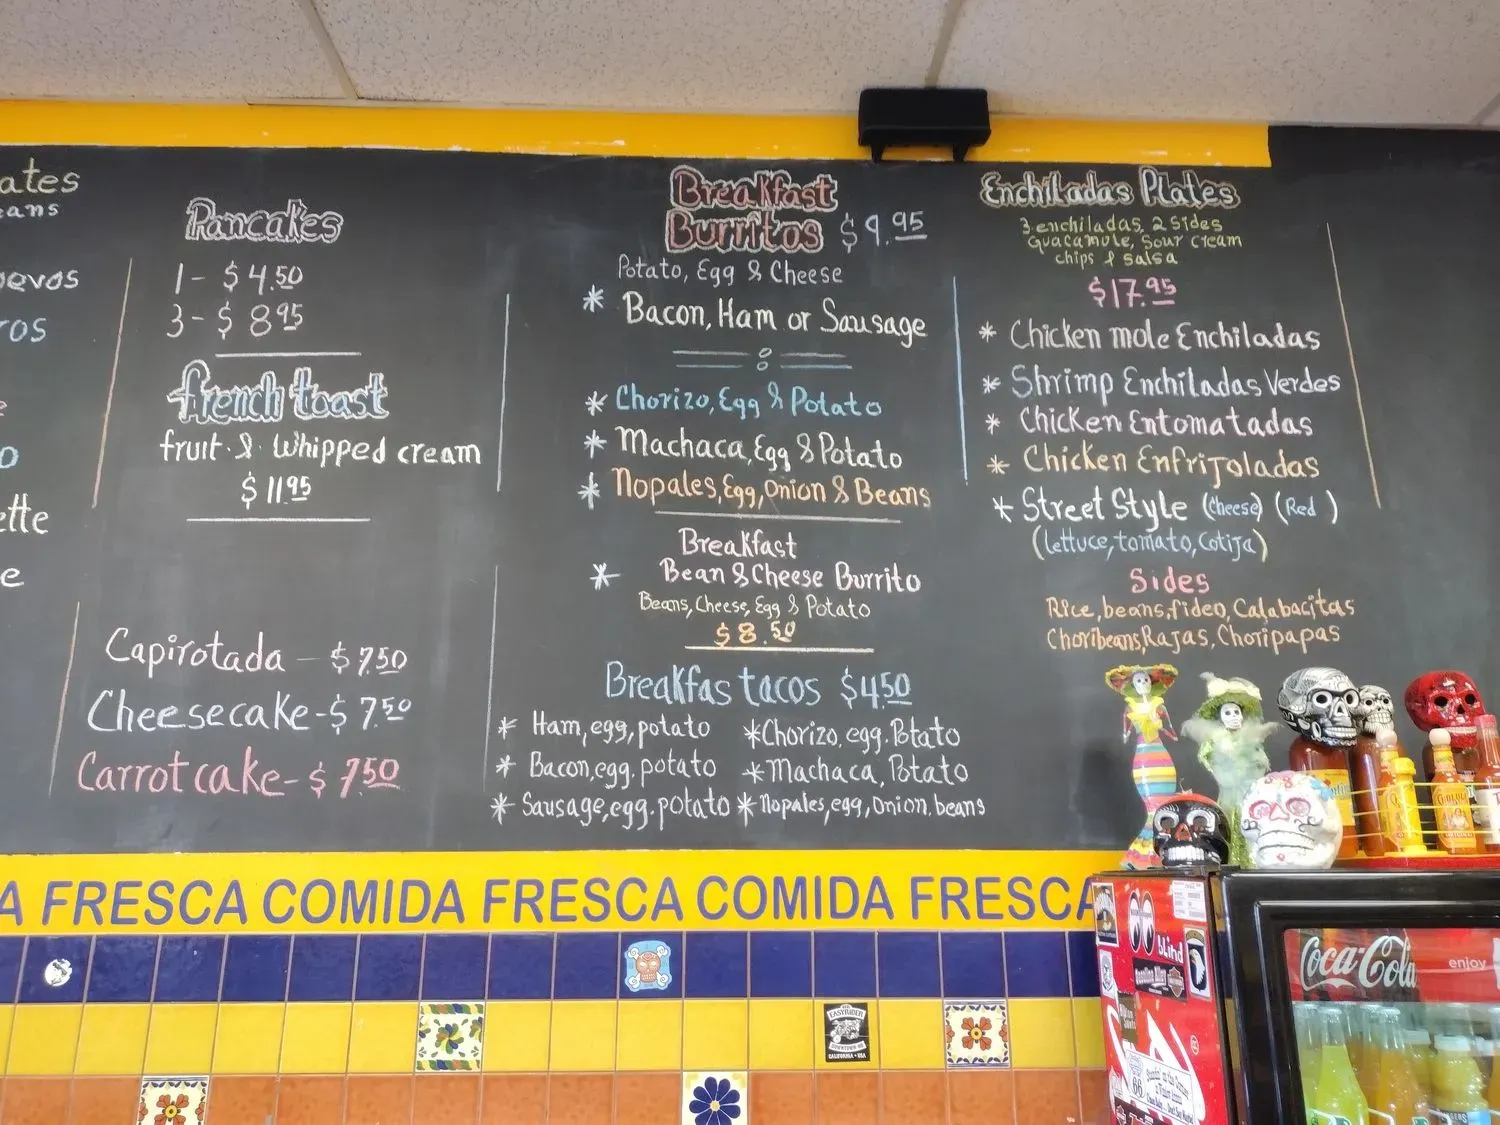 ates
eans
uevos
ros
e
o
ette
e
Pancakes
1 - $4.50
3 - $8.95
french toast
fruit & whipped cream
$11.95
Capirotada - $7.50
Cheesecake - $7.50
Carrot cake - $7.50
Breakfast
Burritos $9.95
Potato, Egg & Cheese
* Bacon, Ham or Sausage
* Chorizo, Egg & Potato
* Machaca, Egg & Potato
* Nopales, Egg, Onion & Beans
Breakfast
* Bean & Cheese Burrito
Beans, Cheese, Egg & Potato
$8.50
Breakfas tacos $4.50
* Ham, egg, potato
* Bacon, egg. potato
* Sausage, egg. potato
* Chorizo, egg. Potato
* Machaca, Potato
* Nopales, egg, Onion. beans
Enchiladas Plates
3 enchiladas, 2 Sides
Guacamole, Sour cream
chips & salsa
$17.95
* Chicken mole Enchiladas
* Shrimp Enchiladas Verdes
* Chicken Entomatadas
* Chicken Enfrijoladas
* Street Style (Cheese) (Red)
(lettuce, tomato, Cotija)
Sides
Rice, beans, fideo, Calabacitas
Choribeans, Rajas, Choripapas
A FRESCA COMIDA FRESCA COMIDA FRESCA
blind
Coca-Cola
enjoy
EASYRIDER
CALIFORNIA • USA
66